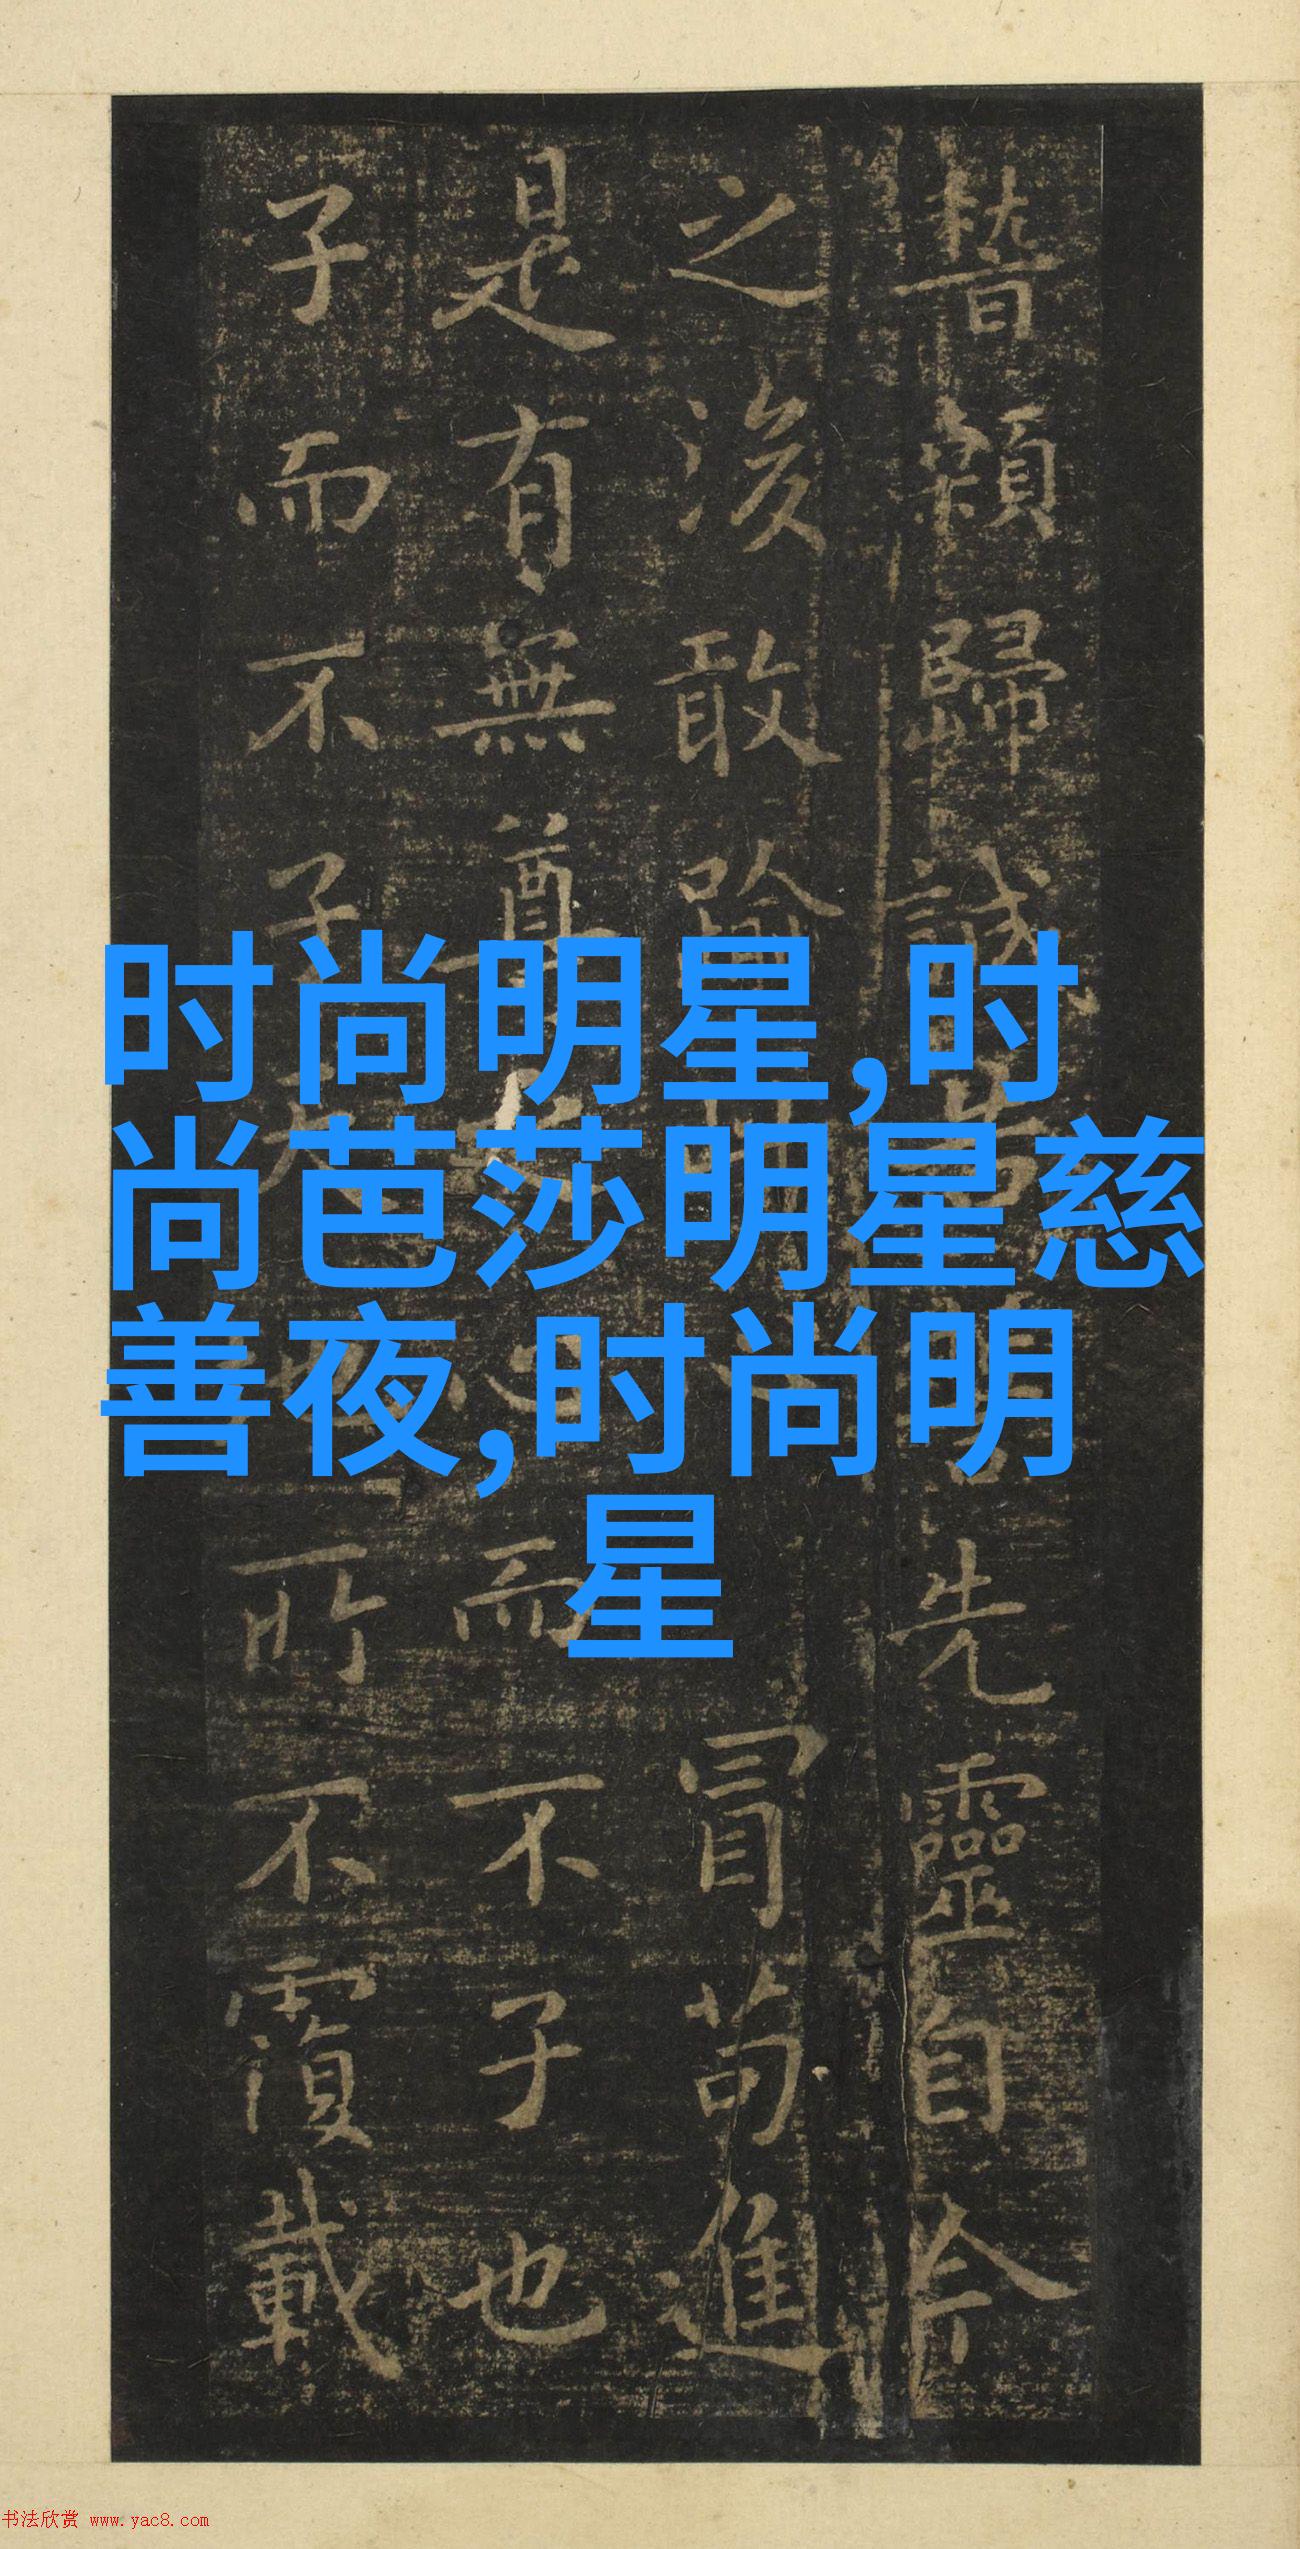 时尚明星,时
尚芭莎明星慈
善夜,时尚明
星
顙歸誠告先靈自今
之後敢冒苟進
是有無尊心而不子也
子而不子天所不覆載
书法欣赏 www.yac8.com